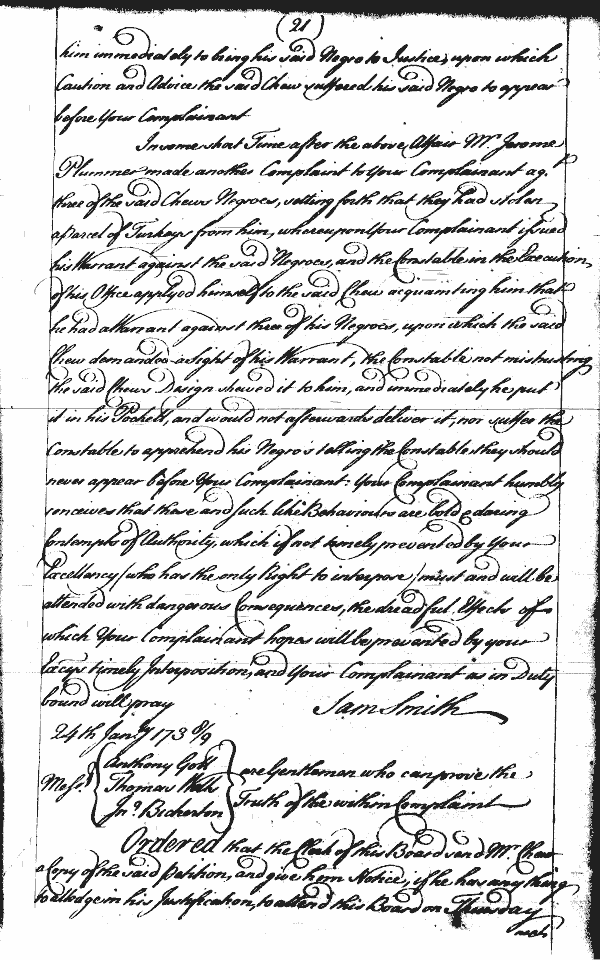 (21)
him immediately to bring his said Negro to Justice, upon which
Caution and Advice the said Chew suffered his said Negro to appear
before Your Complainant
In some short Time after the above Affair Mr. Jerome
Plummer made another Complaint to Your Complainant ag.
three of the said Chews Negroes, setting forth that they had stolen
a parcel of Turkeys from him, whereupon Your Complainant issued
his Warrant against the said Negroes, and the Constable in the Execution
of his Office applyed himself to the said Chew acquainting him that
he had a Warrant against three of his Negroes, upon which the said
Chew demanded a sight of his Warrant, the Constable not mistrusting
the said Chews Design shewed it to him, and immediately he put
it in his Pockett, and would not afterwards deliver it, nor suffer the
Constable to apprehend his Negro's telling the Constable they should
never appear before Your Complainant: Your Complainant humbly
conceives that these and such like Behaviours are bold & daring
Contempts of Authority, which if not timely prevented by Your
Excellency (who has the only Right to interpose) must and will be
attended with dangerous Consequences, the dreadful Effects of
which Your Complainant hopes will be prevented by your
Excys timely Interposition, and Your Complainant as in Duty
bound will pray Sam Smith
24th Jany 173 8/9
Anthony Gott
Messrs Thomas are Gentlemen who can prove the
Jno. Bickerton Truth of the within Complaint
Ordered that the Clerk of this Board send Mr. Chew
a Copy of the said Petition, and give him Notice, if he has any thing
to alledge in his Justification, to attend this Board on Thursday